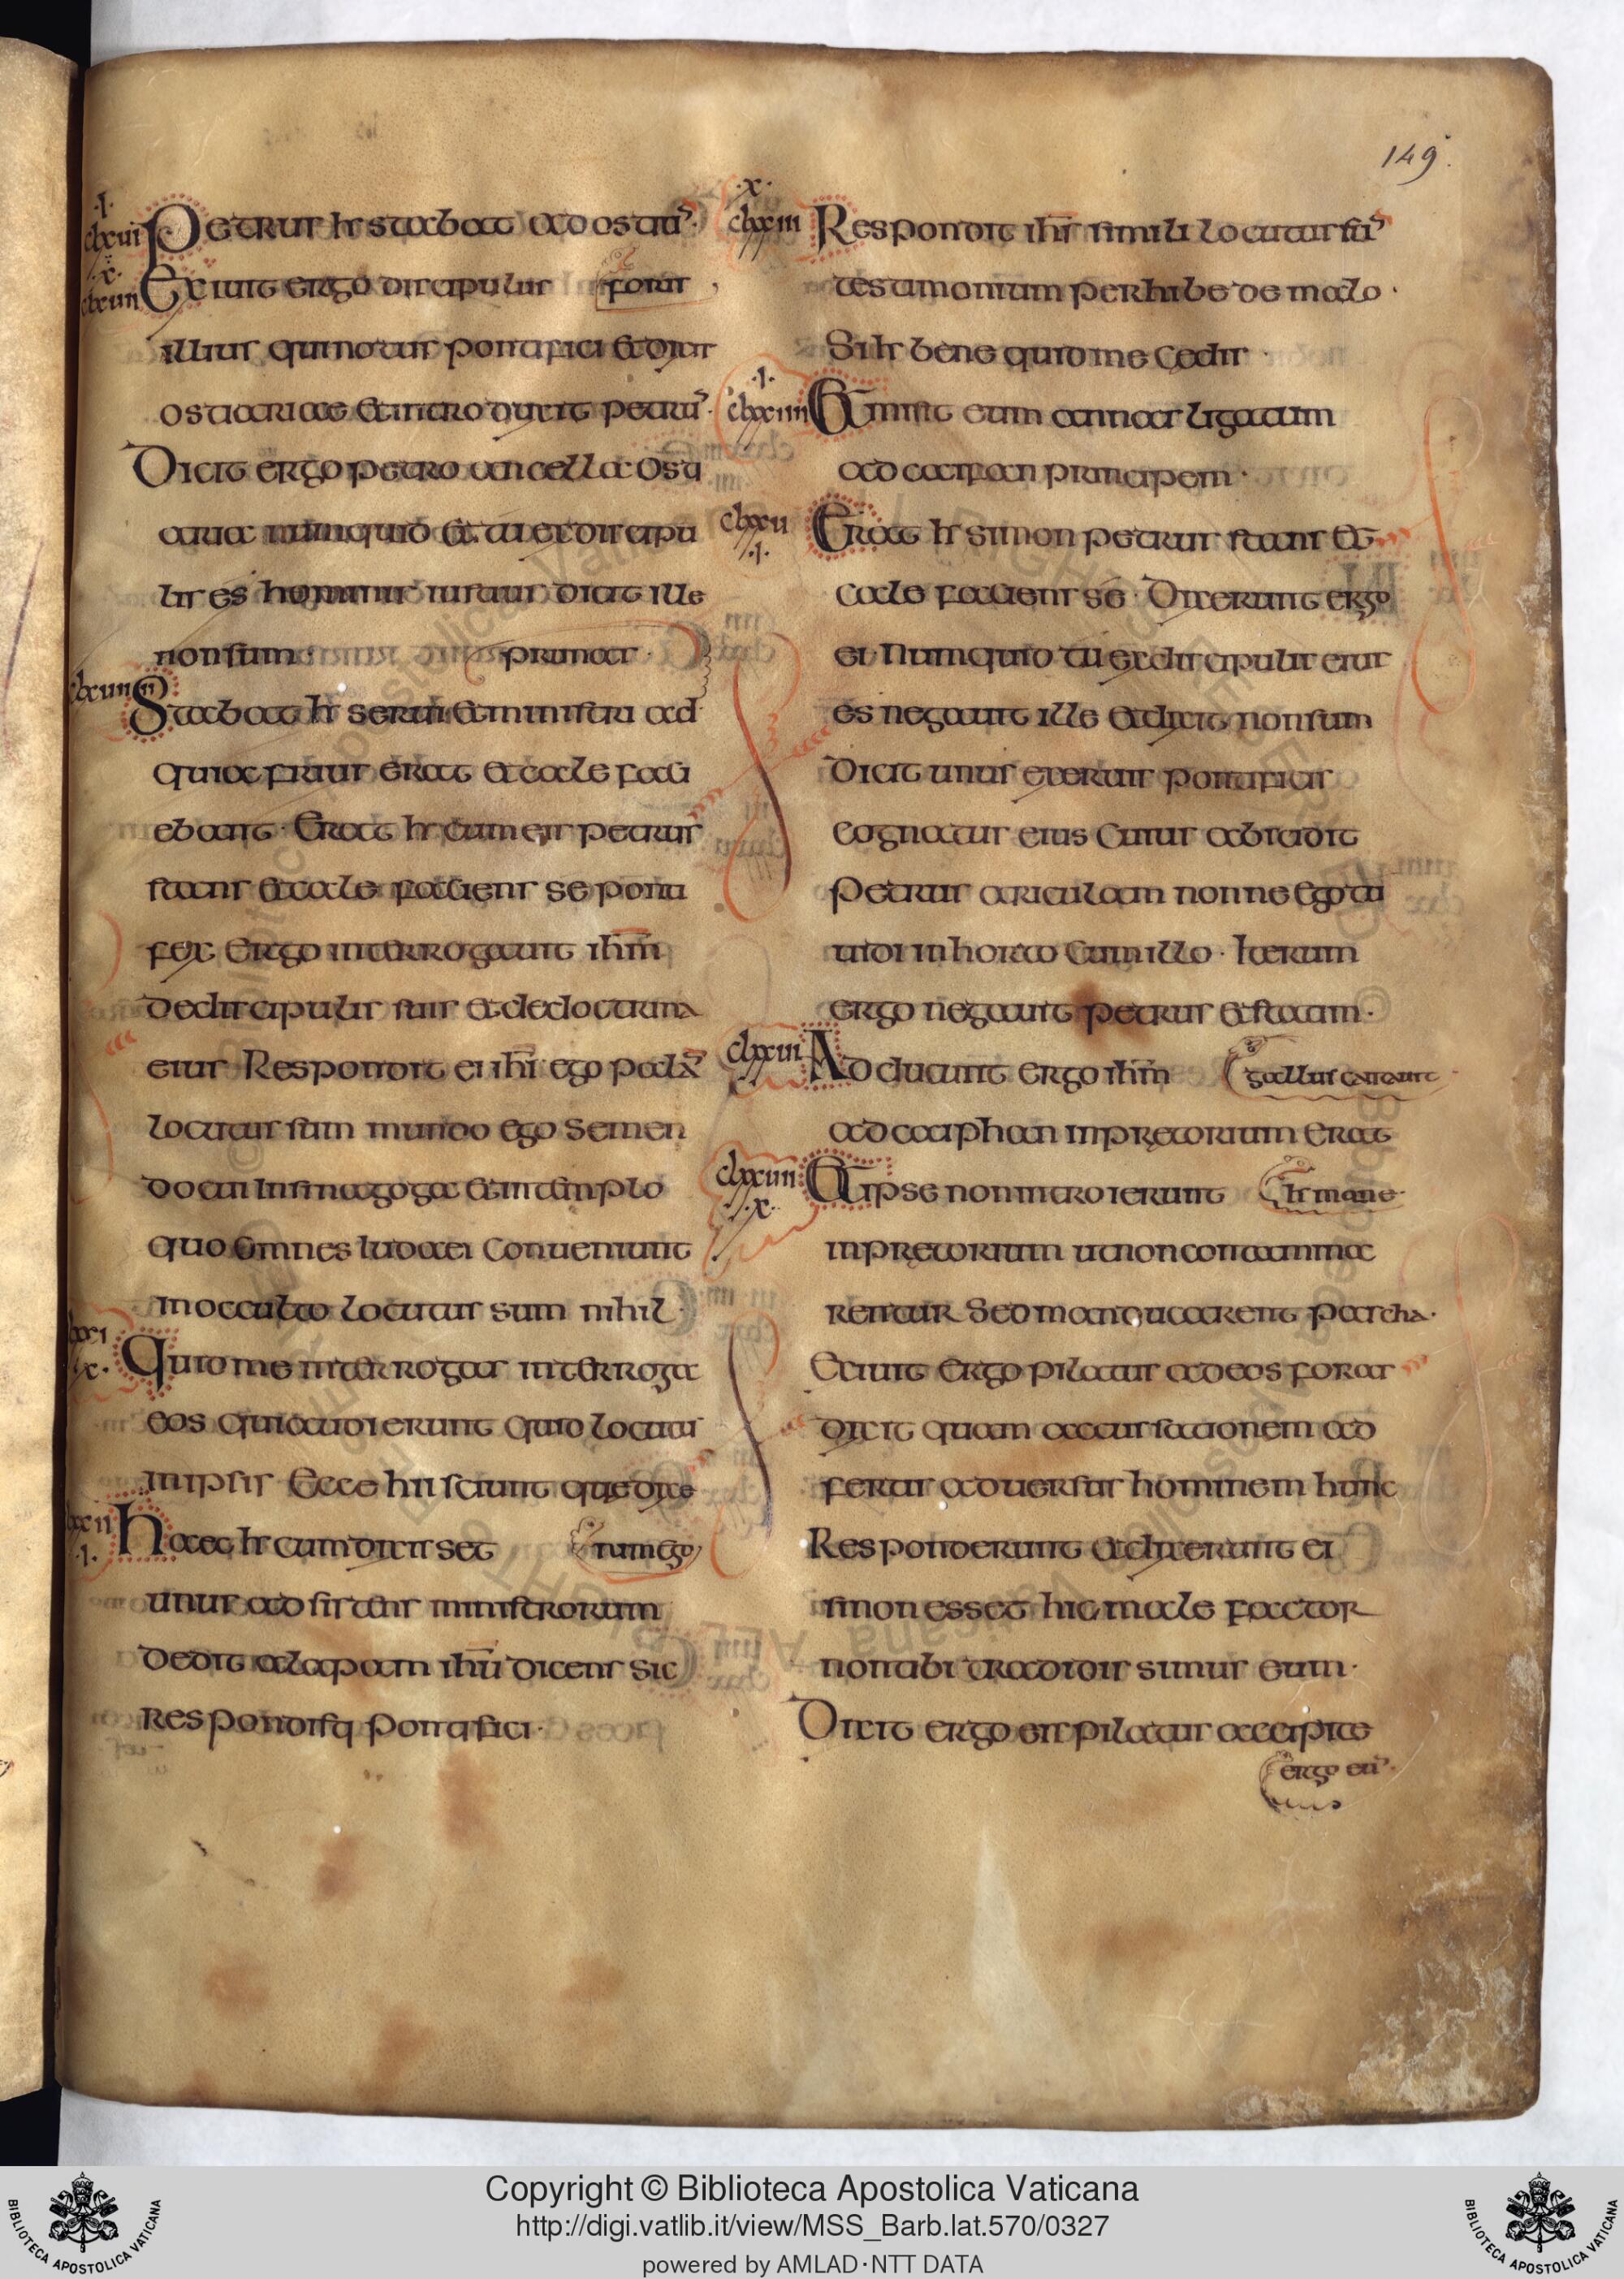 149.
.I.
clxxui Petrus hr stabat ad ostiū.
.x.
clxxuii Exiuit ergo discipulus
foris
illius qui notus pontifici et dixit
ostiariae et introduxit petrū.
Dicit ergo petro ancella osti
aria numquid et tu ex discipu
lis es hominis istius dicit ille
non sum.
primas.
Stabat hr serui et ministri ad
quia frigus erat et cale faci
ebant. Erat hr cum eis petrus
stans et cale faciens se ponti
fex ergo interrogauit ihm̄
de discipulis suis et de doctrina
eius. Respondit ei ihs̄ ego palā
locutus sum mundo ego semen
do cui in sinagoga et in templo
quo omnes iudaei conueniunt
in occulto locutus sum nihil.
.x. Quid me interrogas interroga
eos qui audierunt quid locutus
in ipsis Ecce hii sciunt que dixe
.I. Haec hr cum dixisset
rim ego
unus adsistens ministrorum
dedit alapam ihū dicens sic
respondisq pontifici.
.x.
clxxiii Respondit ihs̄ si mali locutus sū
testimonium perhibe de malo.
Si hr bene quid me cedis.
.I.
clxxiiii Et misit eum annas ligatum
ad caifan principem.
clxxu Erat hr simon petrus stans et
.I.
cale faciens se. Dixerunt ergo
ei Numquid tu ex discipulis eius
es negauit ille et dixit non sum
Dicit unus ex seruis pontificis
cognatus eius cuius abscidit
petrus auriculam nonne ego tu
uidi in horto cum illo. Iterum
ergo negauit petrus et statim.
clxxui Adducunt ergo ihm̄
gallus cantauit
ad caiphan in pretorium erat
clxxuii Et ipse non introierunt
hr mane.
.x.
in pretorium ut non contamina
rentur sed manducarent pascha.
Exiuit ergo pilatus ad eos foras
dixit quam accussationem ad
fertis aduersus hominem hunc
Responderunt et dixerunt ei
si non esset hic male factor
non tibi tradidissimus eum.
Dixit ergo eis pilatus accipite
ergo eū.
Copyright © Biblioteca Apostolica Vaticana
http://digi.vatlib.it/view/MSS_Barb.lat.570/0327
powered by AMLAD·NTT DATA
BIBLIOTECA APOSTOLICA VATICANA
BIBLIOTECA APOSTOLICA VATICANA